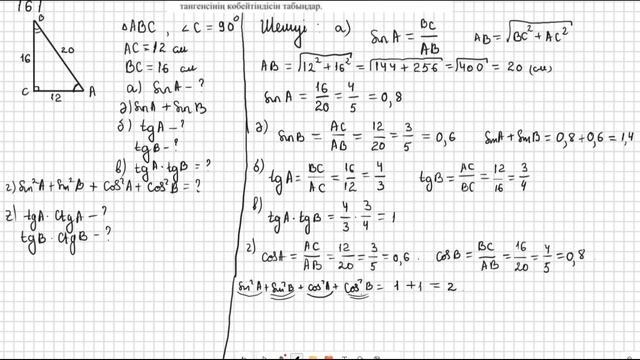 тангенсінің көбейтіндісін табыңдар.
161
B
16
20
C
12
A
△ABC, ∠C = 90°
AC = 12 см
BC = 16 см
а) sinA - ?
ә) sinA + sinB
б) tgA - ?
tgB - ?
в) tgA · tgB = ?
г) sin²A + sin²B + cos²A + cos²B = ?
ғ) tgA · ctgA - ?
tgB · ctgB - ?
Шешуі: а) sinA = BC/AB AB = √(BC² + AC²)
AB = √(12² + 16²) = √(144 + 256) = √400 = 20 (см)
sinA = 16/20 = 4/5 = 0,8
ә) sinB = AC/AB = 12/20 = 3/5 = 0,6 sinA + sinB = 0,8 + 0,6 = 1,4
б) tgA = BC/AC = 16/12 = 4/3 tgB = AC/BC = 12/16 = 3/4
в) tgA · tgB = 4/3 · 3/4 = 1
г) cosA = AC/AB = 12/20 = 3/5 = 0,6. cosB = BC/AB = 16/20 = 4/5 = 0,8.
sin²A + sin²B + cos²A + cos²B = 1 + 1 = 2.